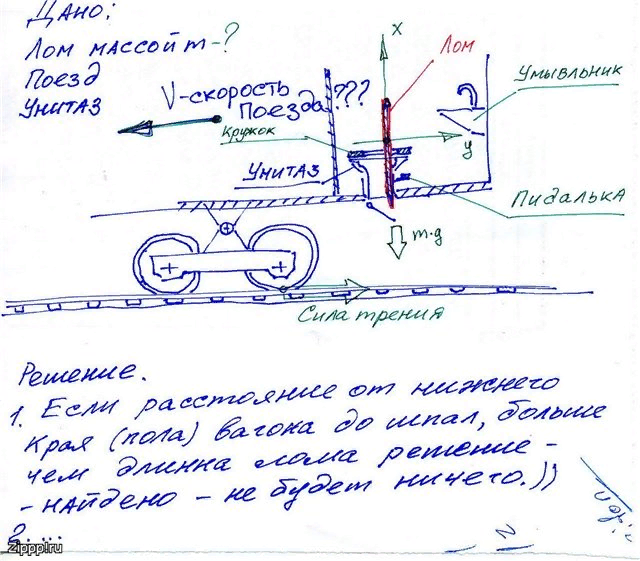 Дано:
Лом массой m-?
Поезд
Унитаз
V-скорость
поезда ???
x
Лом
Умывльник
Кружок
y
Унитаз
Пидалька
m·g
Сила трения
Решение.
1. Если расстояние от нижнего
края (пола) вагока до шпал, больше
чем длинна лома решение -
- найдено - не будет ничего.))
2. ...
zippp!ru